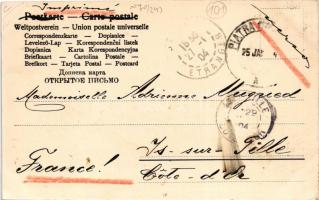 Imprimé
Postkarte — Carte postale
Weltpostverein — Union postale universelle
Correspondenzkarte — Dopisnice
Levelező-Lap — Korespondenční lístek
Dopisnica — Karta Korespondencyjna
Briefkaart — Cartolina Postale
Brefkort — Tarjeta Postal — Postcard
ОТКРЫТОЕ ПИСЬМО
ETRANGER
PIATRA
25 JAN
04
Mademoiselle Adrienne
Is-sur-Tille
France!
Côte-d'Or